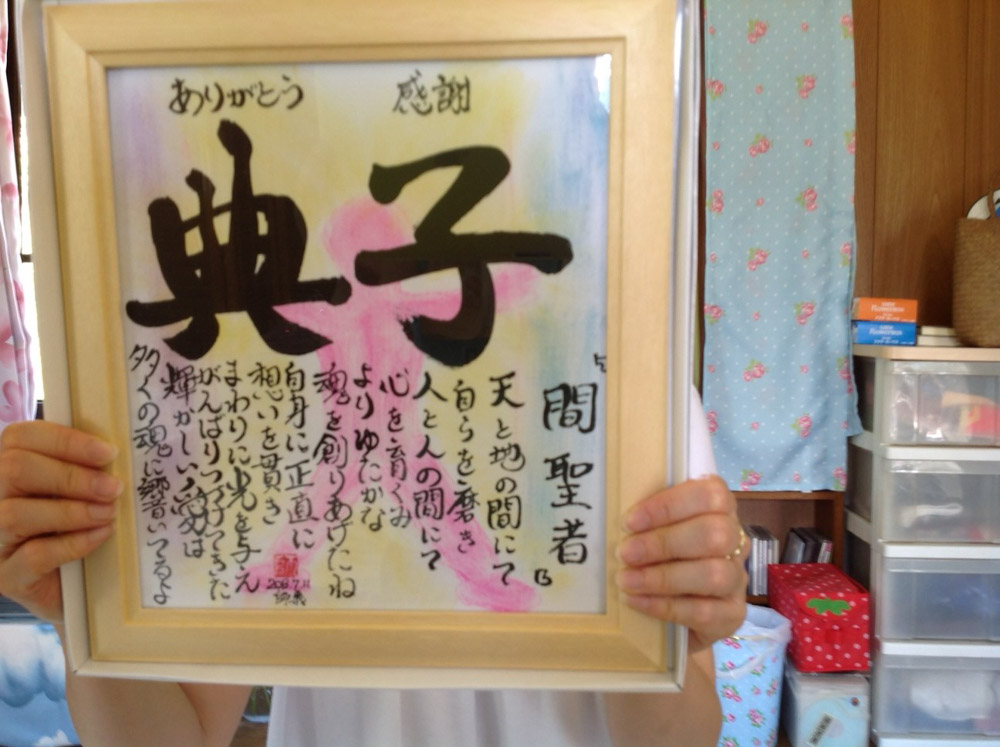 感謝
ありがとう
典子
間聖者
天と地の間にて
自らを磨き
人と人の間にて
心を育くみ
よりゆたかな
魂を創りあげたね
自身に正直に
想いを貫き
まわりに光を与え
がんばりつづけてきた
輝かしい愛は
多くの魂に響いてるよ